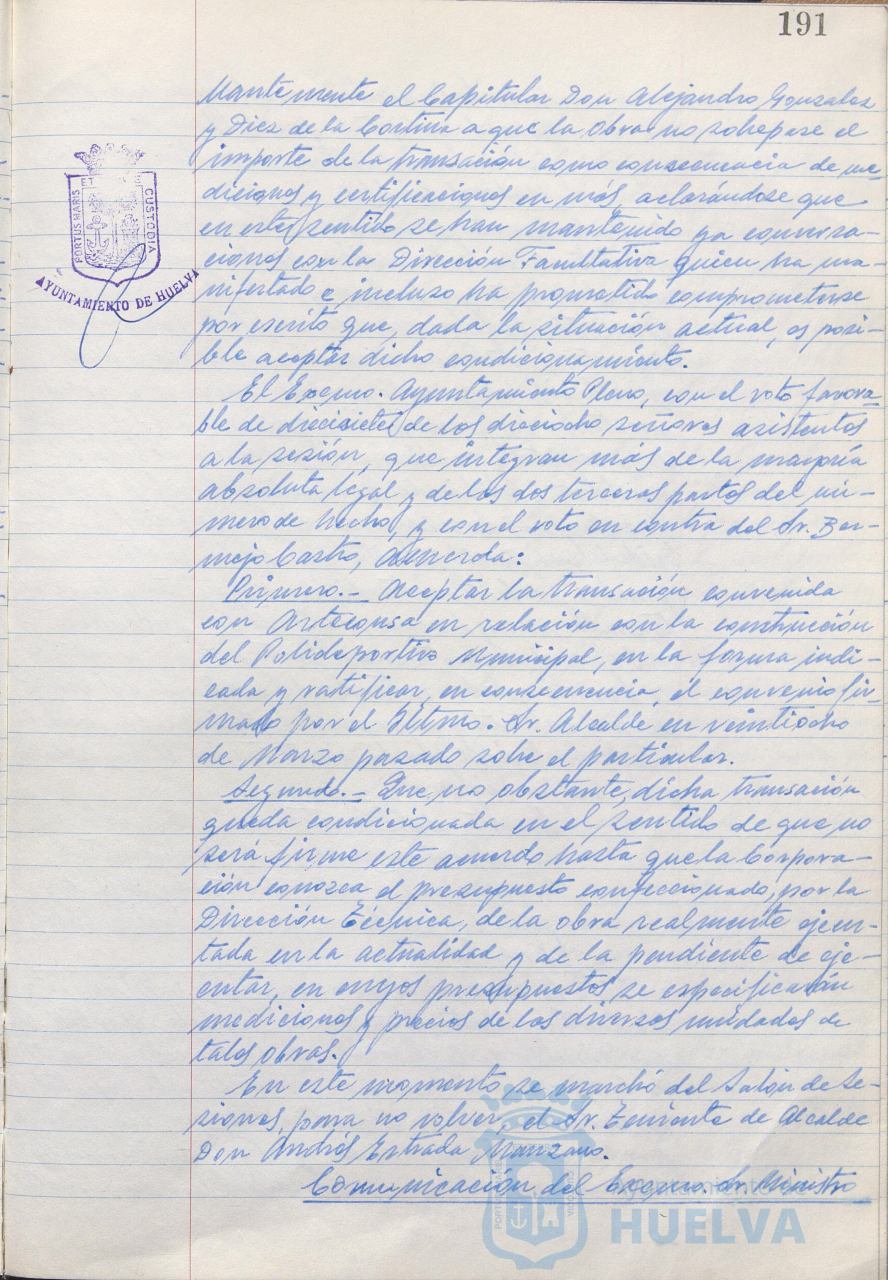 191
mantemente el Capitular Don Alejandro Gonzalez
y Diez de la Cortina a que la obra no sobrepase el
importe de la transación como consecuencia de me-
diciones y certificaciones en más, aclarándose que
en este sentido se han mantenido ya conversa-
ciones con la Dirección Facultativa quien ha ma-
nifestado e incluso ha prometido comprometerse
por escrito que, dada la situación actual, es posi-
ble aceptar dicho condicionamiento.
El Excmo. Ayuntamiento Pleno, con el voto favora-
ble de diecisiete de los dieciocho señores asistentes
a la sesión, que integran más de la mayoría
absoluta legal y de los dos terceras partes del nú-
mero de hecho, y con el voto en contra del Sr. Ber-
mejo Castro, acuerda:
Primero.- Aceptar la transación convenida
con Arteconsa en relación con la construcción
del Polideportivo Municipal, en la forma indi-
cada y ratificar, en consecuencia, el convenio fir-
mado por el Iltmo. Sr. Alcalde en veintiocho
de Marzo pasado sobre el particular.
Segundo.- Que no obstante, dicha transación
queda condicionada en el sentido de que no
será firme este acuerdo hasta que la Corpora-
ción conozca el presupuesto confeccionado, por la
Dirección Técnica, de la obra realmente ejecu-
tada en la actualidad y de la pendiente de eje-
cutar, en cuyos presupuestos se especificarán
mediciones y precios de los diversos unidades de
tales obras.
En este momento se marchó del Salón de Se-
siones, para no volver, el Sr. Teniente de Alcalde
Don Andrés Estrada Manzano.
Comunicación del Excmo. Sr. Ministro
PORTUS MARIS
CUSTODIA
AYUNTAMIENTO DE HUELVA
Ayuntamiento de
HUELVA